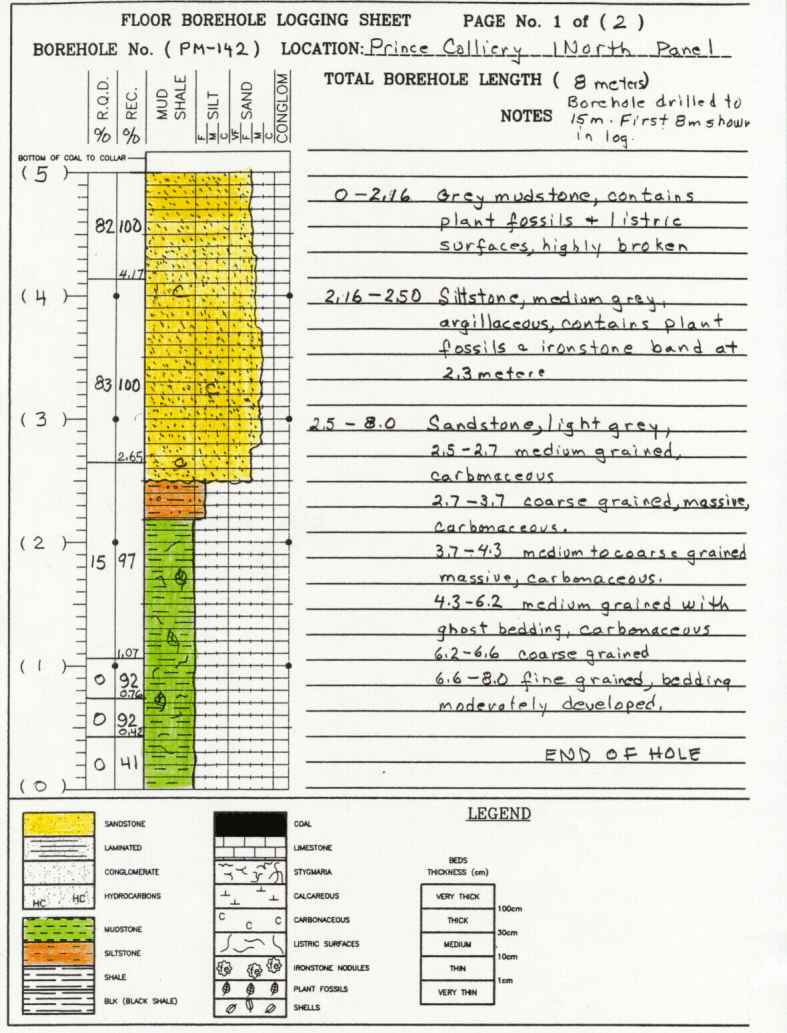 FLOOR BOREHOLE LOGGING SHEET PAGE No. 1 of ( 2 )
BOREHOLE No. ( PM-142 ) LOCATION: Prince Colliery 1North Panel
TOTAL BOREHOLE LENGTH ( 8 meters)
NOTES Borehole drilled to
15m. First 8m shown
in log.
R.Q.D. %
REC. %
MUD SHALE
SILT
F M C
SAND
VF F M C
CONGLOM
BOTTOM OF COAL TO COLLAR
( 5 )
82 100
4.17
( 4 )
83 100
( 3 )
2.65
( 2 )
15 97
1.07
( 1 )
0 92
0.76
0 92
0.42
0 41
( 0 )
0 – 2.16 Grey mudstone, contains
plant fossils + listric
surfaces, highly broken
2.16 – 2.50 Siltstone, medium grey,
argillaceous, contains plant
fossils & ironstone band at
2.3 metere
2.5 – 8.0 Sandstone, light grey,
2.5 – 2.7 medium grained,
carbonaceous
2.7 – 3.7 coarse grained, massive,
carbonaceous.
3.7 – 4.3 medium to coarse grained
massive, carbonaceous.
4.3 – 6.2 medium grained with
ghost bedding, carbonaceous
6.2 – 6.6 coarse grained
6.6 – 8.0 fine grained, bedding
moderately developed.
END OF HOLE
LEGEND
SANDSTONE
LAMINATED
CONGLOMERATE
HC HC HYDROCARBONS
MUDSTONE
SILTSTONE
SHALE
BLK (BLACK SHALE)
COAL
LIMESTONE
STYGMARIA
CALCAREOUS
C C C CARBONACEOUS
LISTRIC SURFACES
IRONSTONE NODULES
PLANT FOSSILS
SHELLS
BEDS
THICKNESS (cm)
VERY THICK
100cm
THICK
30cm
MEDIUM
10cm
THIN
1cm
VERY THIN